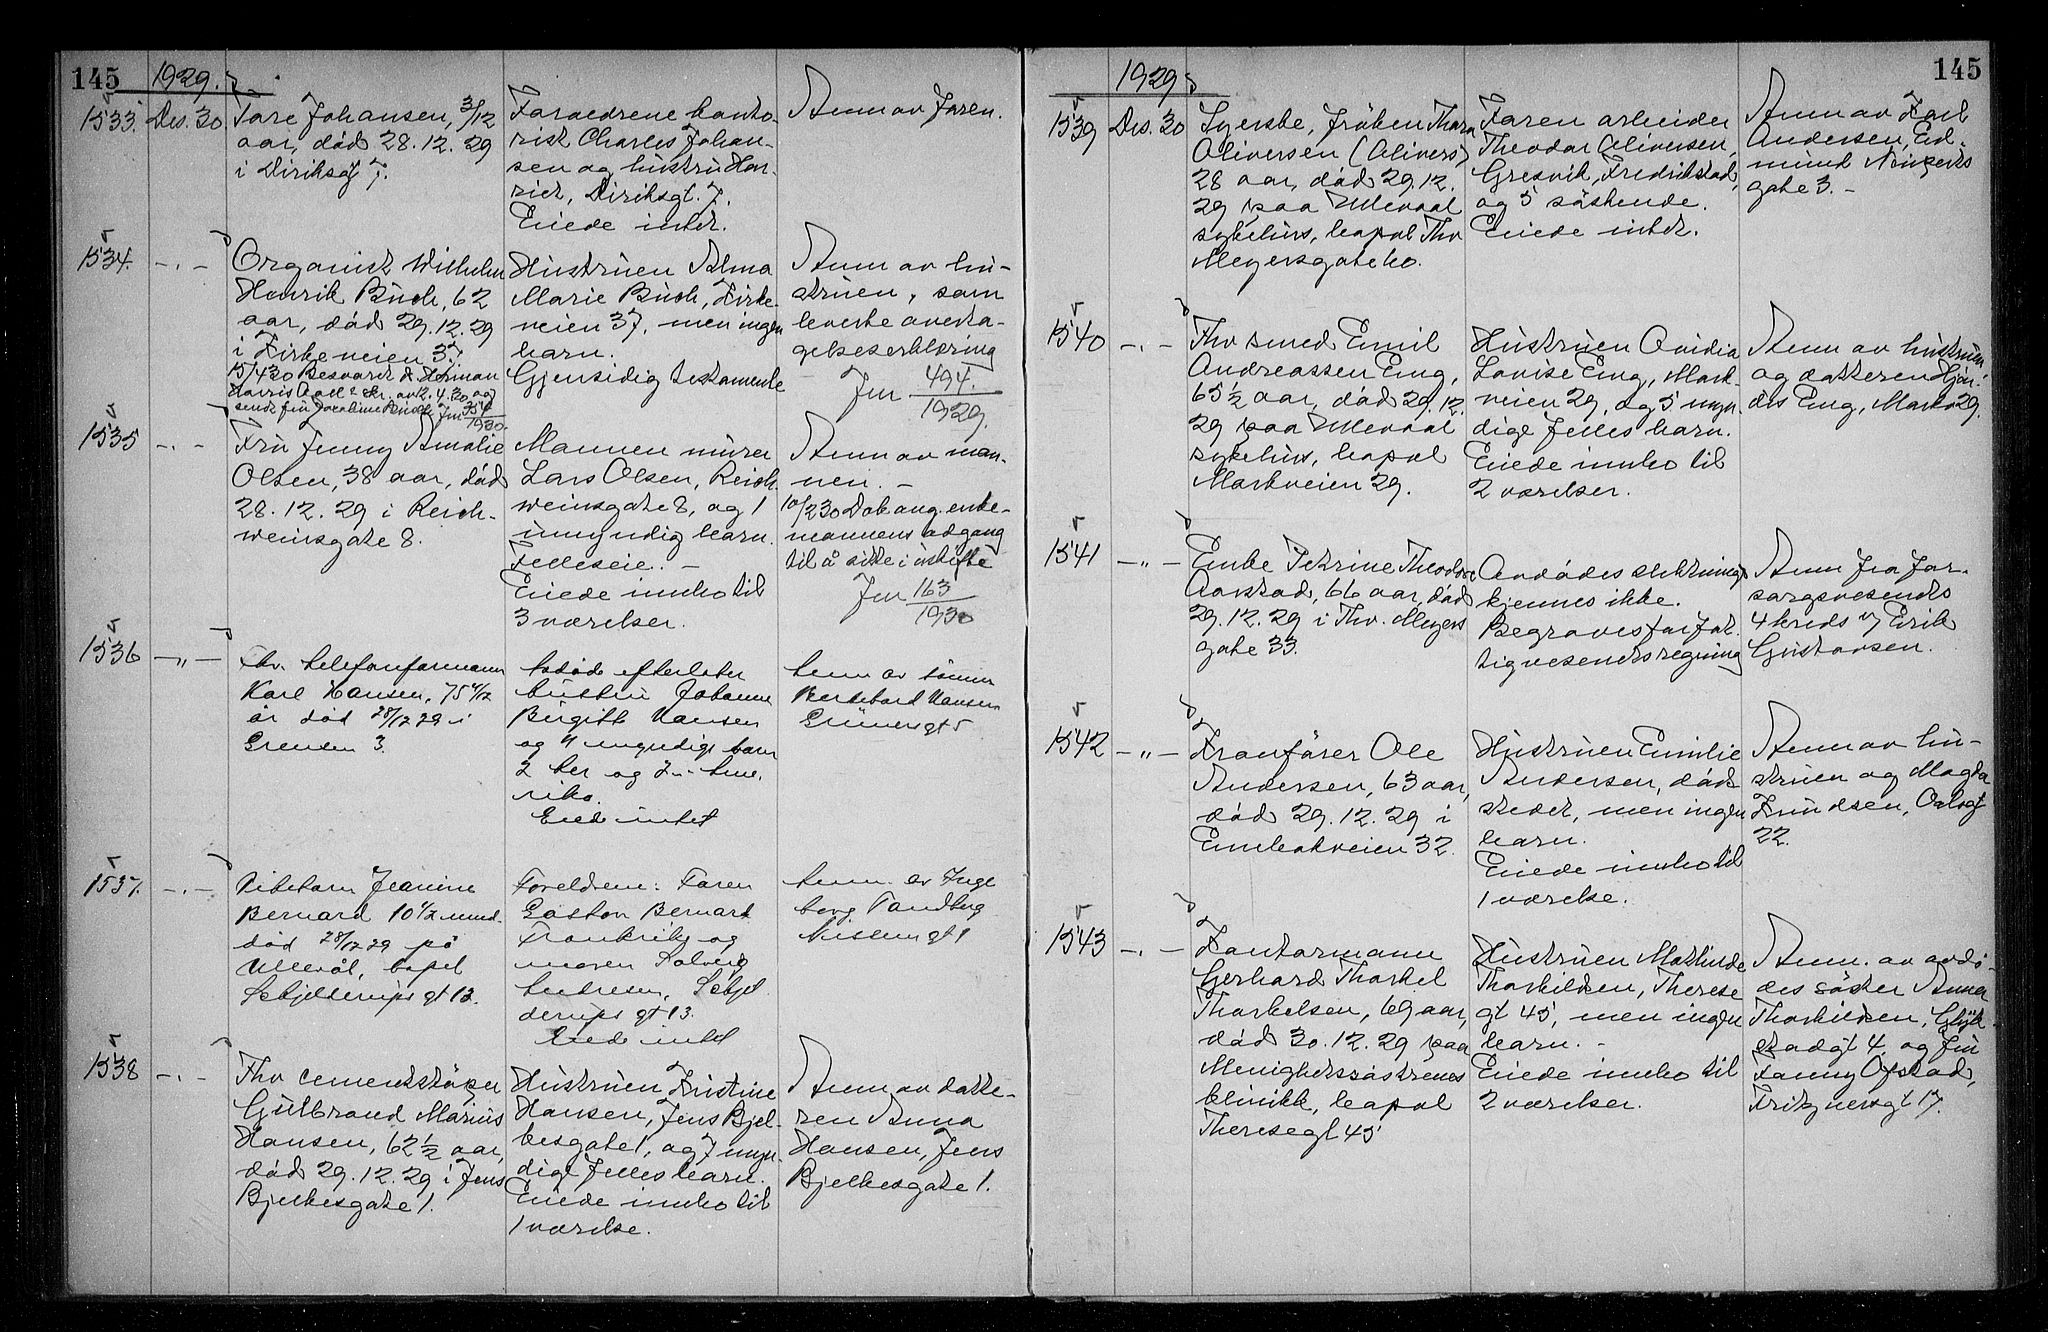 145 1929.
1533. Des. 30. Tore Johansen, 3/12
aar, död 28.12.29
i Diriksgt 7.
Foraedrene konto-
rist Charles Johan-
sen og hustru Hen-
riet, Diriksgt. 7.
Eiede intet.
Anm av faren.
1534. -.- Organist Wilhelm
Henrik Buch, 62
aar, död 29.12.29
i Kirkeveien 37.
15/4 30 Besvaret
av 12.4.30 og
Jnr 354/1930.
Hustruen Alma
Marie Buch, Kirke-
veien 37, men ingen
barn.
Gjensidig testamente
Anm av hu-
struen, som
leverte overta-
gelseserklæring
Jnr 494/1929.
1535 -.- Fru Jenny Amalie
Olsen, 38 aar, död
28.12.29 i Reich-
weinsgate 8.
Mannen murer
Lars Olsen, Reich-
weinsgate 8, og 1
umyndig barn.
Felleseie. -
Eiede innbo til
3 værelser.
Anm av man-
nen. -
10/2 30 Dok ang. enke-
mannens adgang
til å sitte i uskifte
Jnr 163/1930
1536 -"- fhv. telefonformann
Karl Hansen, 75
år död 28/12 29 i
Grensen 3.
efterlater
hustru Johanne
Birgitte Hansen
og 4 myndige barn
2 her og 2 i Ame-
rika.
Eiede intet
Anm av sönnen
Hansen
Grünersgt 5
1537. -.- Pikebarn Jeanine
Bernard 10 1/2 mnd.
död 28/12 29 på
Ullevål, bopel
Schjelderups gt 13.
Foreldrene: Faren
Gaston Bernard
Frankrike og
moren Solveig
Andresen, Schjel
derups gt 13.
Eiede intet
Anm. av Inge
borg Tandberg
Nissens gt 1
1538 -.- Fhv cementstöper
Gulbrand Marius
Hansen, 62 1/2 aar,
död 29.12.29 i Jens
Bjelkesgate 1.
Hustruen Kristine
Hansen, Jens Bjel-
kesgate 1, og 7 myn-
dige felles barn.
Eiede innbo til
1 værelse.
Anm av datte-
ren Anna
Hansen, Jens
Bjelkesgate 1.
1929 145
1539 Des. 30 Syerske, fröken Thora
Oliversen (Olivers)
28 aar, död 29.12.
29 paa Ullevaal
sykehus, bopel Thv
Meyersgate 40.
Faren arbeider
Theodor Oliversen,
Gresvik, Fredrikstad,
og 5 söskende.
Eiede intet.
Anm av Karl
Andersen, Ed-
mund Neuperts
gate 3. -
1540 -.- Fhv smed Emil
Andreassen Eng,
65 1/2 aar, död 29.12.
29 paa Ullevaal
sykehus, bopel
Markveien 29.
Hustruen Ovidia
Lovise Eng, Mark-
veien 29, og 5 myn-
dige felles barn.
Eiede innbo til
2 værelser.
Anm av hustruen
og datteren Hjör-
dis Eng, Markv 29.
1541 -"- Enke Petrine Theodora
Aarstad, 66 aar, död
29.12.29 i Thv. Meyers
gate 33.
Avdödes slektninger
kjennes ikke.
Begraves for fat-
tigvesenets regning
Anm fra for-
sorgsvesenets
4 kreds v/ Erik
Gustavsen.
1542 -"- Kranförer Ole
Andersen, 63 aar,
död 29.12.29 i
Enebakveien 32.
Hustruen Emilie
Andersen, död-
stedet, men ingen
barn.
Eiede innbo til
1 værelse.
Anm av hu-
struen og Magda
Knudsen, Oslogt
22.
1543 -.- Kontormann
Gerhard Thorkel
Thorkelsen, 69 aar,
död 30.12.29 paa
Menighetssöstrenes
klinikk, bopel
Theresegt 45
Hustruen Mathilde
Thorkildsen, Therese
gt 45, men ingen
barn. -
Eiede innbo til
2 værelser.
Anm. av avdö-
des söster Anna
Thorkildsen, Glük-
stadgt 4, og fru
Fanny Ofstad,
Fritznersgt 17.